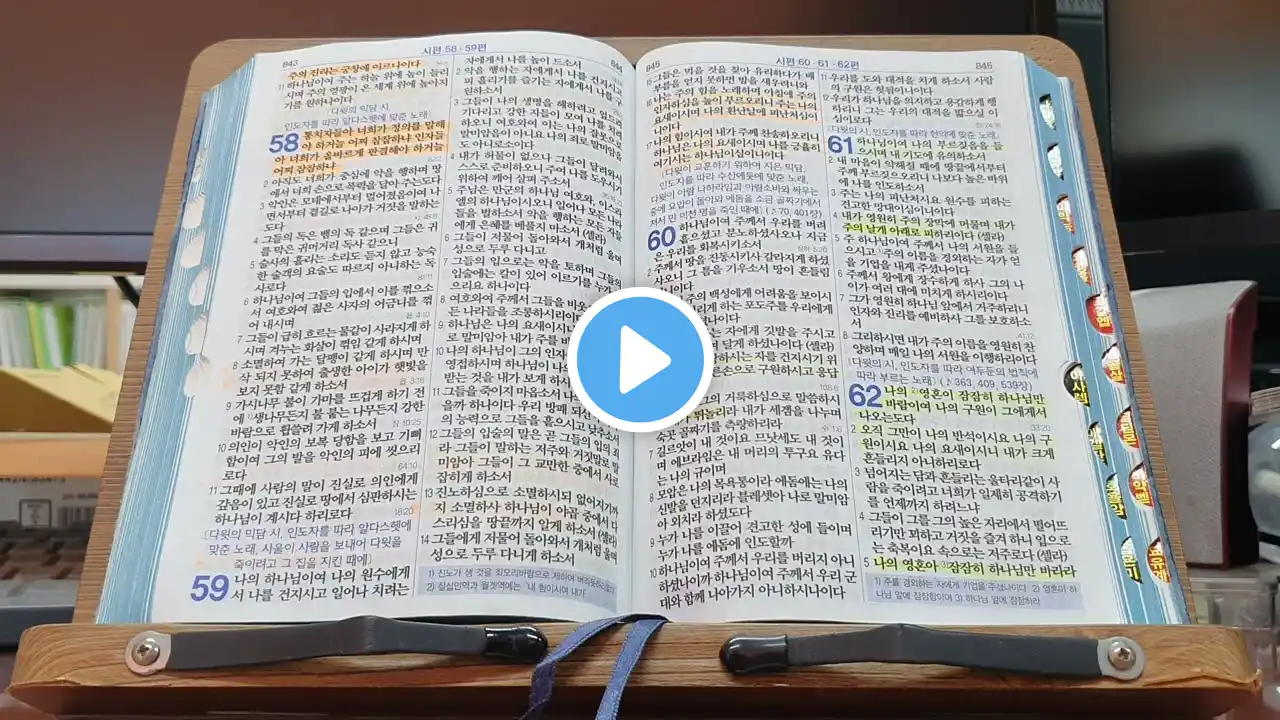 843
시편 58 · 59편
844
주의 진리는 궁창에 이르나이다
11 하나님이여 주는 하늘 위에 높이 들리
시며 주의 영광이 온 세계 위에 높아지
기를 원하나이다
〔다윗의 믹담 시,
인도자를 따라 알다스헷에 맞춘 노래〕
58 통치자들아 너희가 정의를 말해
야 하거늘 어찌 잠잠하냐 인자들
아 너희가 올바르게 판결해야 하거늘
어찌 잠잠하냐
2 아직도 너희가 중심에 악을 행하며 땅
에서 너희 손으로 폭력을 달아 주는도다
3 악인은 모태에서부터 멀어졌음이여 나
면서부터 곁길로 나아가 거짓을 말하는
도다
4 그들의 독은 뱀의 독 같으며 그들은 귀
를 막은 귀머거리 독사 같으니
5 술사의 홀리는 소리도 듣지 않고 능숙
한 술객의 요술도 따르지 아니하는 독
사로다
6 하나님이여 그들의 입에서 이를 꺾으소
서 여호와여 젊은 사자의 어금니를 꺾
어 내시며
7 그들이 급히 흐르는 물같이 사라지게 하
시며 겨누는 화살이 꺾임 같게 하시며
8 소멸하여 가는 달팽이 같게 하시며 만
삭 되지 못하여 출생한 아이가 햇빛을
보지 못함 같게 하소서
9 가시나무 불이 가마를 뜨겁게 하기 전
에 생나무든지 불 붙는 나무든지 강한
바람으로 휩쓸려 가게 하소서
10 의인이 악인의 보복 당함을 보고 기뻐
함이여 그의 발을 악인의 피에 씻으리
로다
11 그때에 사람의 말이 진실로 의인에게
갚음이 있고 진실로 땅에서 심판하시는
하나님이 계시다 하리로다
〔다윗의 믹담 시, 인도자를 따라 알다스헷에
맞춘 노래, 사울이 사람을 보내어 다윗을
죽이려고 그 집을 지킨 때에〕
59 나의 하나님이여 나의 원수에게
서 나를 건지시고 일어나 치려는
자에게서 나를 높이 드소서
2 악을 행하는 자에게서 나를 건지시고
피 흘리기를 즐기는 자에게서 나를 구
원하소서
3 그들이 나의 생명을 해하려고 엎드려
기다리고 강한 자들이 모여 나를 치려
하오니 여호와여 이는 나의 잘못으로
말미암음이 아니요 나의 죄로 말미암음
도 아니로소이다
4 내가 허물이 없으나 그들이 달려와서
스스로 준비하오니 주여 나를 도우시기
위하여 깨어 살펴 주소서
5 주님은 만군의 하나님 여호와, 이스라
엘의 하나님이시오니 일어나 모든 나라
들을 벌하소서 악을 행하는 모든 자들
에게 은혜를 베풀지 마소서 (셀라)
6 그들이 저물어 돌아와서 개처럼 울며
성으로 두루 다니고
7 그들의 입으로는 악을 토하며 그들의
입술에는 칼이 있어 이르기를 누가
으리요 하나이다
8 여호와여 주께서 그들을 비웃
든 나라들을 조롱하시리이
9 하나님은 나의 요새이시니
로 말미암아 내가 주를 바
10 나의 하나님이 그의 인자
영접하시며 하나님이 나
받는 것을 내가 보게 하
11 그들을 죽이지 마옵소서 나
을까 하나이다 우리 방패 되신
의 능력으로 그들을 흩으시고 낮추소
12 그들의 입술의 말은 곧 그들의 입의 죄
라 그들이 말하는 저주와 거짓말로 말
미암아 그들이 그 교만한 중에서 사로
잡히게 하소서
13 진노하심으로 소멸하시되 없어지기까
지 소멸하사 하나님이 야곱 중에서 다
스리심을 땅끝까지 알게 하소서 (셀라)
14 그들에게 저물어 돌아와서 개처럼 울며
성으로 두루 다니게 하소서
2) 잠십인역과 월젓역에는 '내 힘이시여 내가'
845
시편 60 · 61 · 62편
845
15 그들은 먹을 것을 찾아 유리하다가 배
부름을 얻지 못하면 밤을 새우려니와
16 나는 주의 힘을 노래하며 아침에 주의
인자하심을 높이 부르오리니 주는 나의
요새이시며 나의 환난날에 피난처심이
니이다
17 나의 힘이시여 내가 주께 찬송하오리니
하나님은 나의 요새이시며 나를 긍휼히
여기시는 하나님이심이니이다
〔다윗이 교훈하기 위하여 지은 믹담,
인도자를 따라 수산에둣에 맞춘 노래,
다윗이 아람 나하라임과 아람소바와 싸우는
중에 요압이 돌아와 에돔을 소금 골짜기에서
쳐서 만 이천 명을 죽인 때에〕 (♪70, 401장)
60 하나님이여 주께서 우리를 버려
흩으셨고 분노하셨사오나 지금
은 우리를 회복시키소서
2 주께서 땅을 진동시키사 갈라지게 하셨
사오니 그 틈을 기우소서 땅이 흔들림
이니이다
주의 백성에게 어려움을 보이시
게 하는 포도주를 우리에게
나이다
는 자에게 깃발을 주시고
달게 하셨나이다 (셀라)
하시는 자를 건지시기 위
른손으로 구원하시고 응답
그의 거룩하심으로 말씀하시
뛰놀리라 내가 세겜을 나누며
숙곳 골짜기를 측량하리라
7 길르앗이 내 것이요 므낫세도 내 것이
며 에브라임은 내 머리의 투구요 유다
는 나의 규이며
8 모압은 나의 목욕통이라 에돔에는 나의
신발을 던지리라 블레셋아 나로 말미암
아 외치라 하셨도다
9 누가 나를 이끌어 견고한 성에 들이며
누가 나를 에돔에 인도할까
10 하나님이여 주께서 우리를 버리지 아니
하셨나이까 하나님이여 주께서 우리 군
대와 함께 나아가지 아니하시나이다
11 우리를 도와 대적을 치게 하소서 사람
의 구원은 헛됨이니이다
12 우리가 하나님을 의지하고 용감하게 행
하리니 그는 우리의 대적을 밟으실 이
심이로다
〔다윗의 시, 인도자를 따라 현악에 맞춘 노래〕
61 하나님이여 나의 부르짖음을 들
으시며 내 기도에 유의하소서
2 내 마음이 약해질 때에 땅끝에서부터
주께 부르짖으오리니 나보다 높은 바위
에 나를 인도하소서
3 주는 나의 피난처시요 원수를 피하는
견고한 망대이심이니이다
4 내가 영원히 주의 장막에 머물며 내가
주의 날개 아래로 피하리이다 (셀라)
5 주 하나님이여 주께서 나의 서원을 들
으시고 주의 이름을 경외하는 자가 얻
을 기업을 내게 주셨나이다
6 주께서 왕에게 장수하게 하사 그의 나
이가 여러 대에 미치게 하시리이다
7 그가 영원히 하나님 앞에서 거주하리니
인자와 진리를 예비하사 그를 보호하소
서
8 그리하시면 내가 주의 이름을 영원히 찬
양하며 매일 나의 서원을 이행하리이다
〔다윗의 시, 인도자를 따라 여두둔의 법칙에
따라 부르는 노래〕 (♪363, 409, 539장)
62 나의 영혼이 잠잠히 하나님만
바람이여 나의 구원이 그에게서
나오는도다
2 오직 그만이 나의 반석이시요 나의 구
원이시요 나의 요새이시니 내가 크게
흔들리지 아니하리로다
3 넘어지는 담과 흔들리는 울타리같이 사
람을 죽이려고 너희가 일제히 공격하기
를 언제까지 하려느냐
4 그들이 그를 그의 높은 자리에서 떨어뜨
리기만 꾀하고 거짓을 즐겨 하니 입으로
는 축복이요 속으로는 저주로다 (셀라)
5 나의 영혼아 3)잠잠히 하나님만 바라라
1) 주를 경외하는 자에게 기업을 주셨나이다 2) 영혼이 하
나님 앞에 잠잠함이며 3) 하나님 앞에 잠잠하라